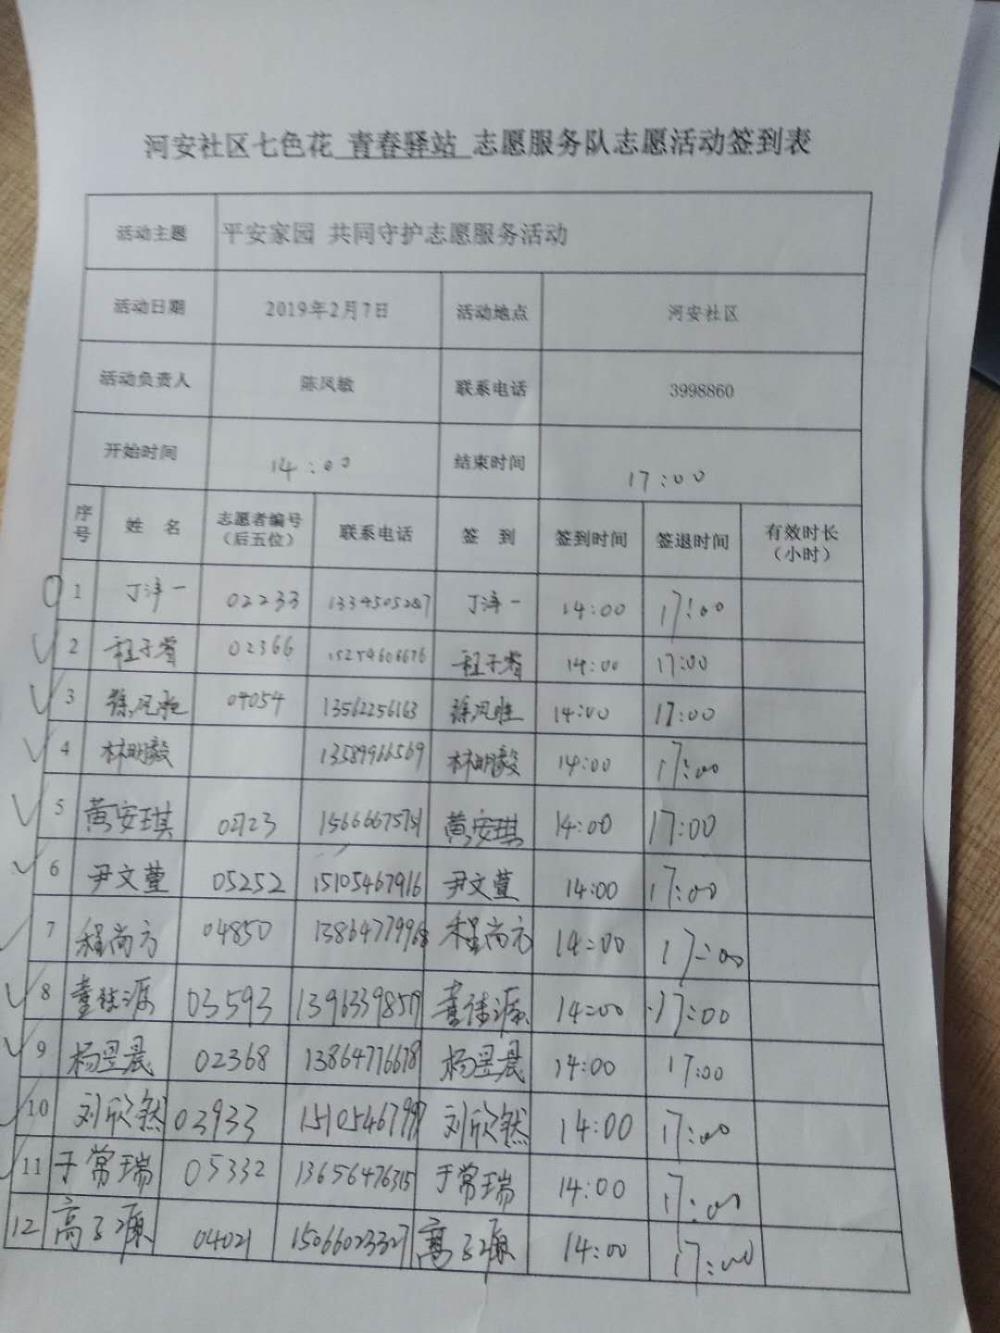 河安社区七色花 青春驿站 志愿服务队志愿活动签到表
活动主题 平安家园 共同守护志愿服务活动
活动日期 2019年2月7日 活动地点 河安社区
活动负责人 陈凤敏 联系电话 3998860
开始时间 14:00 结束时间 17:00
序号 姓名 志愿者编号（后五位） 联系电话 签到 签到时间 签退时间 有效时长（小时）
1 丁泽一 02233 13345052187 丁泽一 14:00 17:00
2 程子睿 02366 15254606676 程子睿 14:00 17:00
3 徐凤胜 04054 13562256163 徐凤胜 14:00 17:00
4 林明毅 13589966569 林明毅 14:00 17:00
5 黄安琪 02723 15666675751 黄安琪 14:00 17:00
6 尹文萱 05252 15105467916 尹文萱 14:00 17:00
7 程尚方 04850 13864779968 程尚方 14:00 17:00
8 03593 14:00 17:00
9 杨昱晨 02368 13864776678 杨昱晨 14:00 17:00
10 刘欣然 03933 刘欣然 14:00 17:00
11 于常瑞 05332 13656476315 于常瑞 14:00 17:00
12 高子源 04021 15066023327 高子源 14:00 17:00